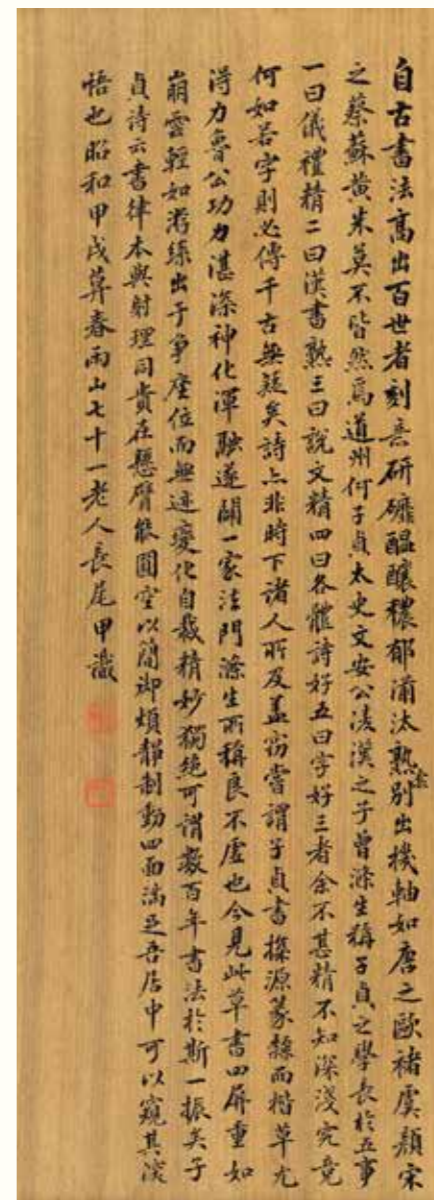 自古書法高出百世者刻意研礦醞釀穠郁淘汰熟別出機軸如唐之歐褚虞顏宋
之蔡蘇黃朱莫不皆然焉道州何子貞太史文安公淩漢之子曾滌生稱子貞之學長於五事
一曰儀禮精二曰漢書熟三曰說文精四曰各體詩好五曰字好三者余不甚精不知深淺究竟
何如若字則必傳千古無疑矣詩亦非時下諸人所及蓋窃嘗謂子貞書探源篆隸而楷草尤
得力魯公功力湛深神化渾融遂闢一家法門滌生所稱良不虛也今見此草書四屏重如
崩雲輕如游絲出于爭座位而無迹變化自裁精妙獨絕可謂數百年書法於斯一振矣子
貞詩云書律本與射理同貴在懸臂能圓空以簡御煩靜制動四面滿足吾居中可以窺其深
悟也昭和甲戌暮春雨山七十一老人長尾甲識